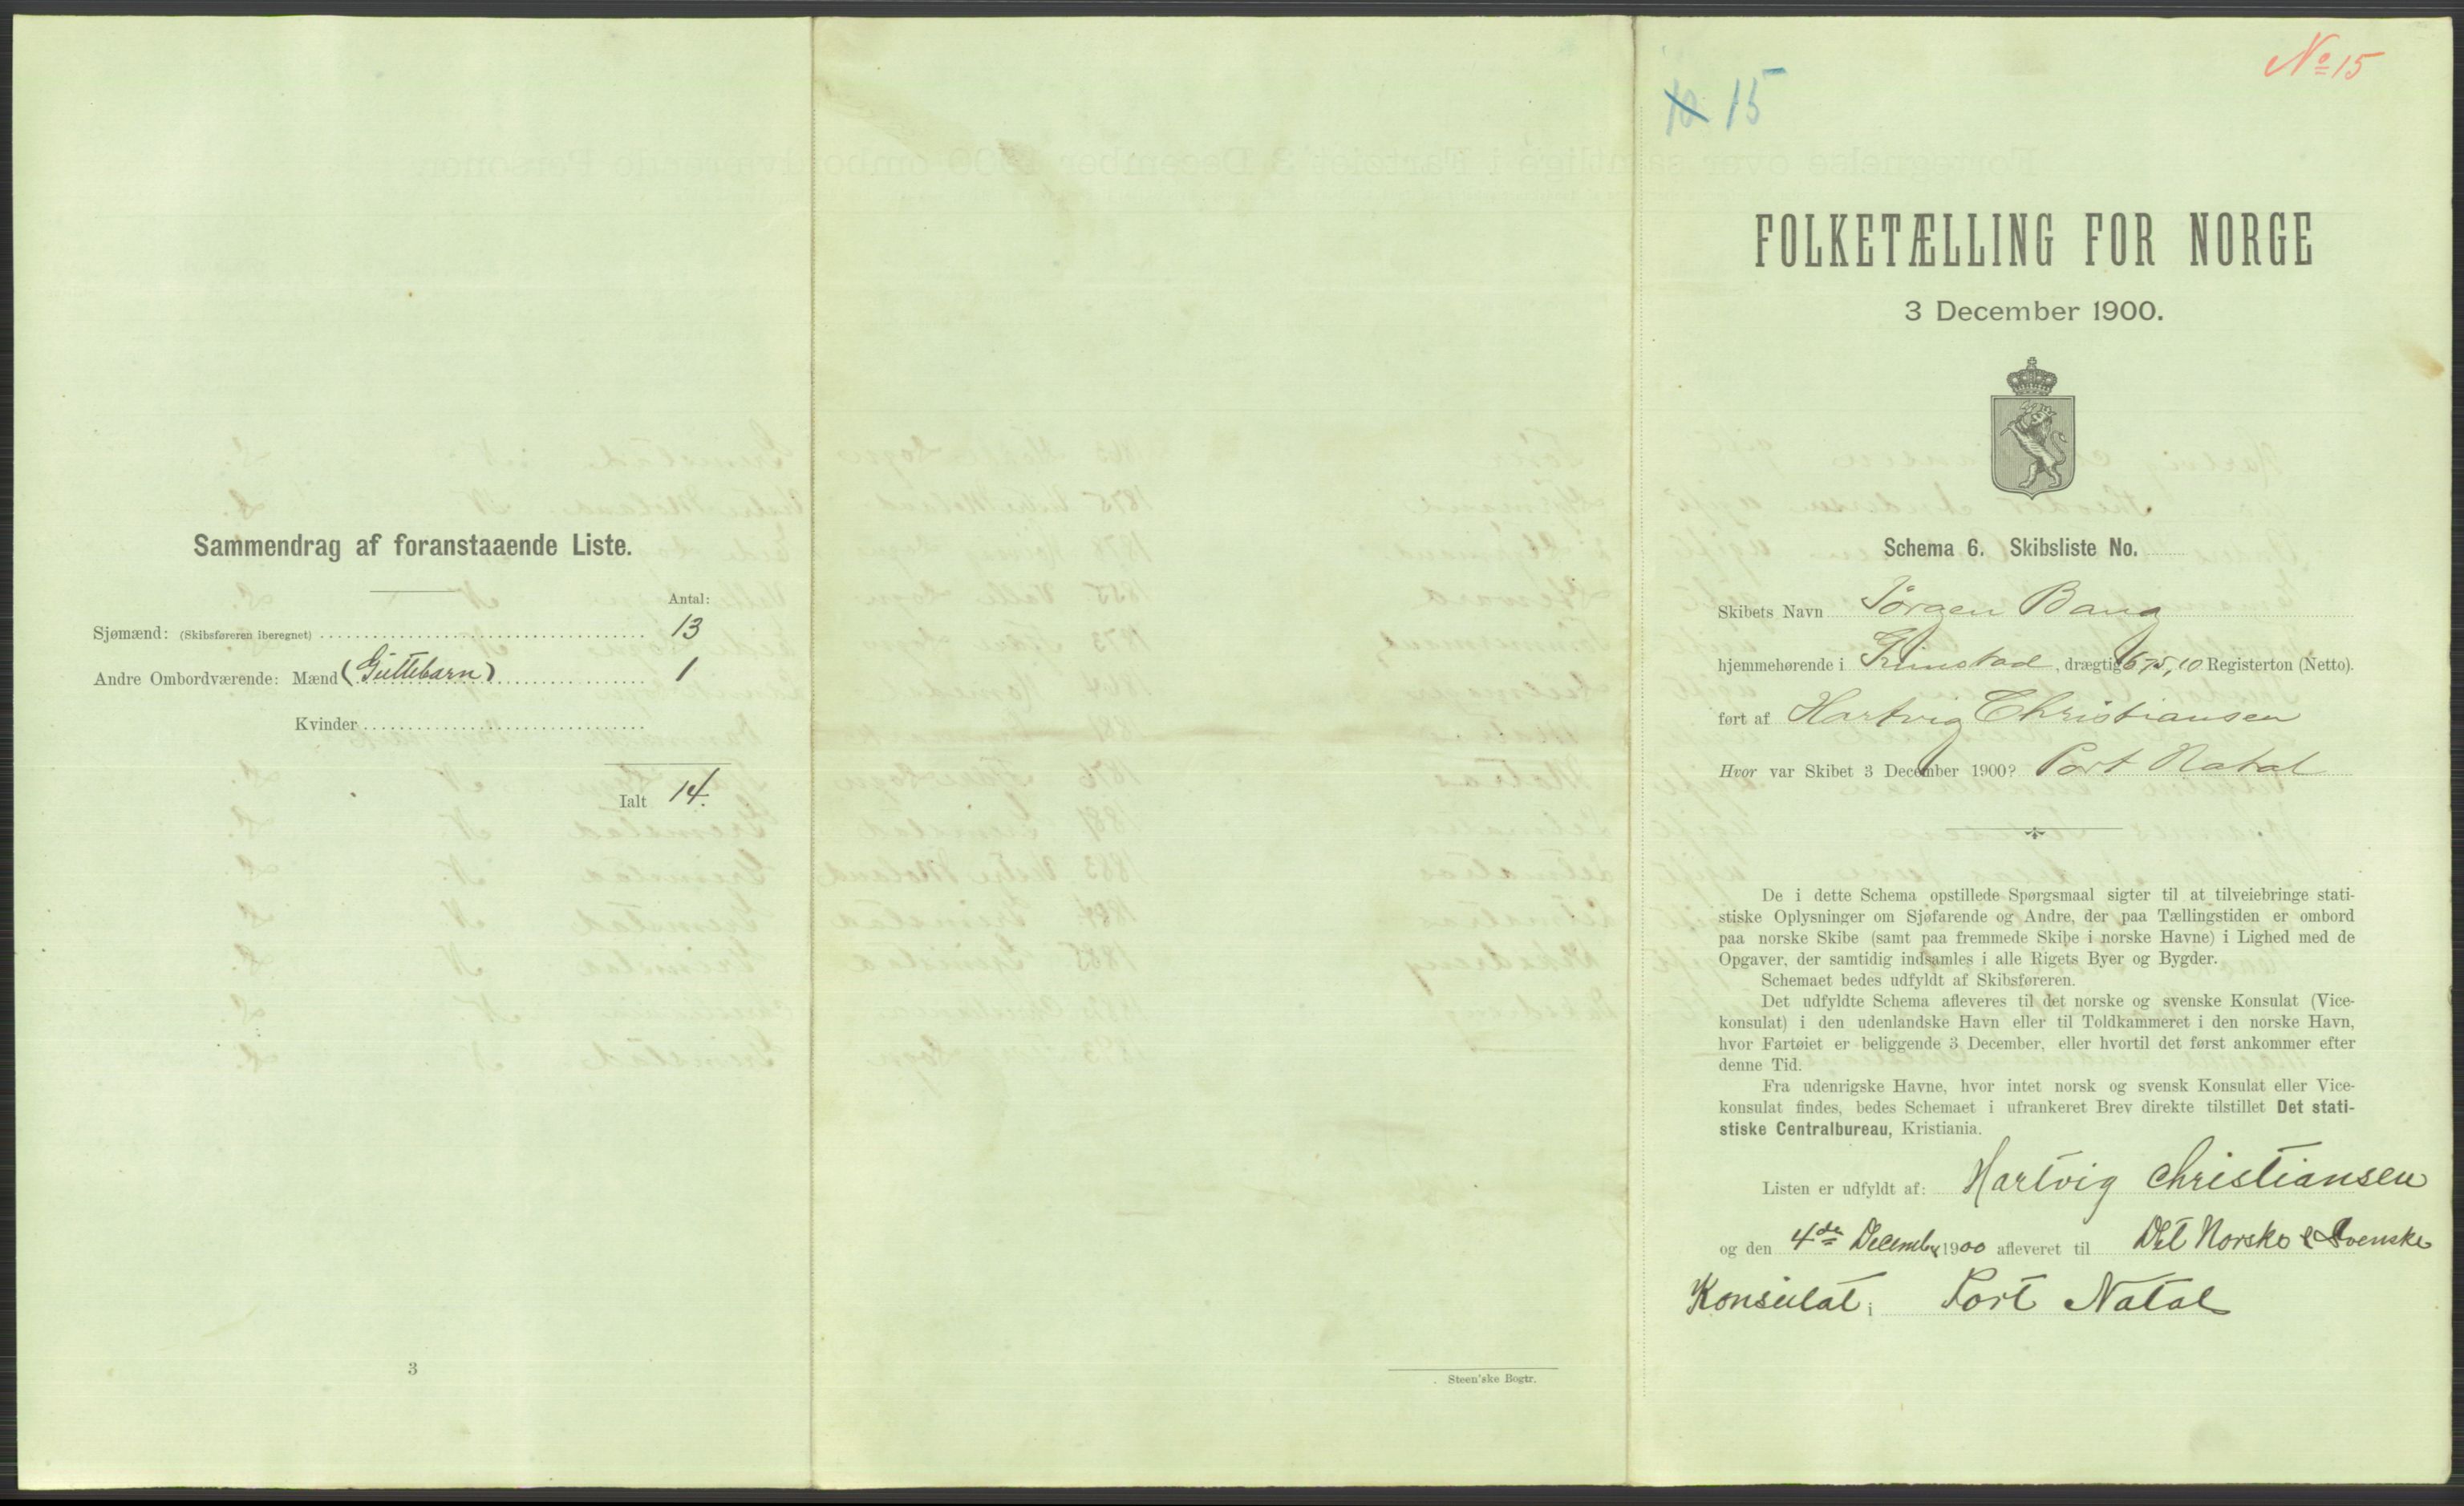 Sammendrag af foranstaaende Liste.
Antal:
Sjømænd: (Skibsføreren iberegnet) 13
Andre Ombordværende: Mænd (Guttebarn) 1
Kvinder
Ialt 14.
3
Steen'ske Bogtr.
No 15
10 15
FOLKETÆLLING FOR NORGE
3 December 1900.
Schema 6. Skibsliste No.
Skibets Navn Jörgen Bang
hjemmehørende i Grimstad, drægtig 675,10 Registerton (Netto).
ført af Hartvig Christiansen
Hvor var Skibet 3 December 1900? Port Natal
De i dette Schema opstillede Spørgsmaal sigter til at tilveiebringe stati-
stiske Oplysninger om Sjøfarende og Andre, der paa Tællingstiden er ombord
paa norske Skibe (samt paa fremmede Skibe i norske Havne) i Lighed med de
Opgaver, der samtidig indsamles i alle Rigets Byer og Bygder.
Schemaet bedes udfyldt af Skibsføreren.
Det udfyldte Schema afleveres til det norske og svenske Konsulat (Vice-
konsulat) i den udenlandske Havn eller til Toldkammeret i den norske Havn,
hvor Fartøiet er beliggende 3 December, eller hvortil det først ankommer efter
denne Tid.
Fra udenrigske Havne, hvor intet norsk og svensk Konsulat eller Vice-
konsulat findes, bedes Schemaet i ufrankeret Brev direkte tilstillet Det stati-
stiske Centralbureau, Kristiania.
Listen er udfyldt af: Hartvig Christiansen
og den 4de December 1900 afleveret til Det Norske & Svenske
Konsulat i Port Natal